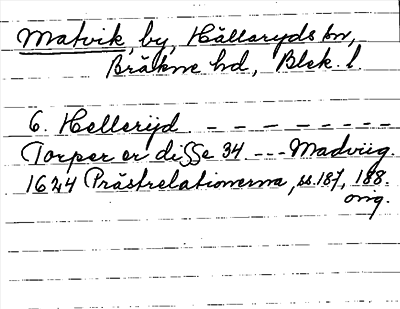 Matvik, by, Hällaryds sn,
Bräkne hd, Blek. l.
6. Hellerijd - - - - - - - - -
Torper er disse 34 --- Madviig.
1624 Prästrelationerna, ss. 187, 188.
orig.